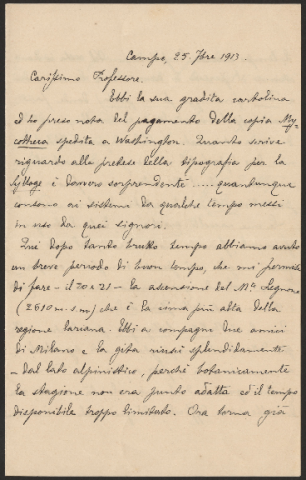 Campo, 25. 7bre 1913.
Carissimo Professore.
Ebbi la sua gradita cartolina
ed ho preso nota del pagamento della copia My-
cotheca spedita a Washington. Quanto scrive
riguardo alle pretese della tipografia per la
Sylloge è davvero sorprendente ..... quantunque
consono ai sistemi da qualche tempo messi
in uso da quei signori.
Qui dopo tanto brutto tempo abbiamo avuto
un breve periodo di buon tempo, che mi permise
di fare - il 20 e 21 - la ascensione del Mte Legnone
(2610 m. s m) che è la cima più alta della
regione lariana. Ebbi a compagni due amici
di Milano e la gita riuscì splendidamente
- dal lato alpinistico, perchè botanicamente
la stagione non era punto adatta ed il tempo
disponibile troppo limitato. Ora torna già